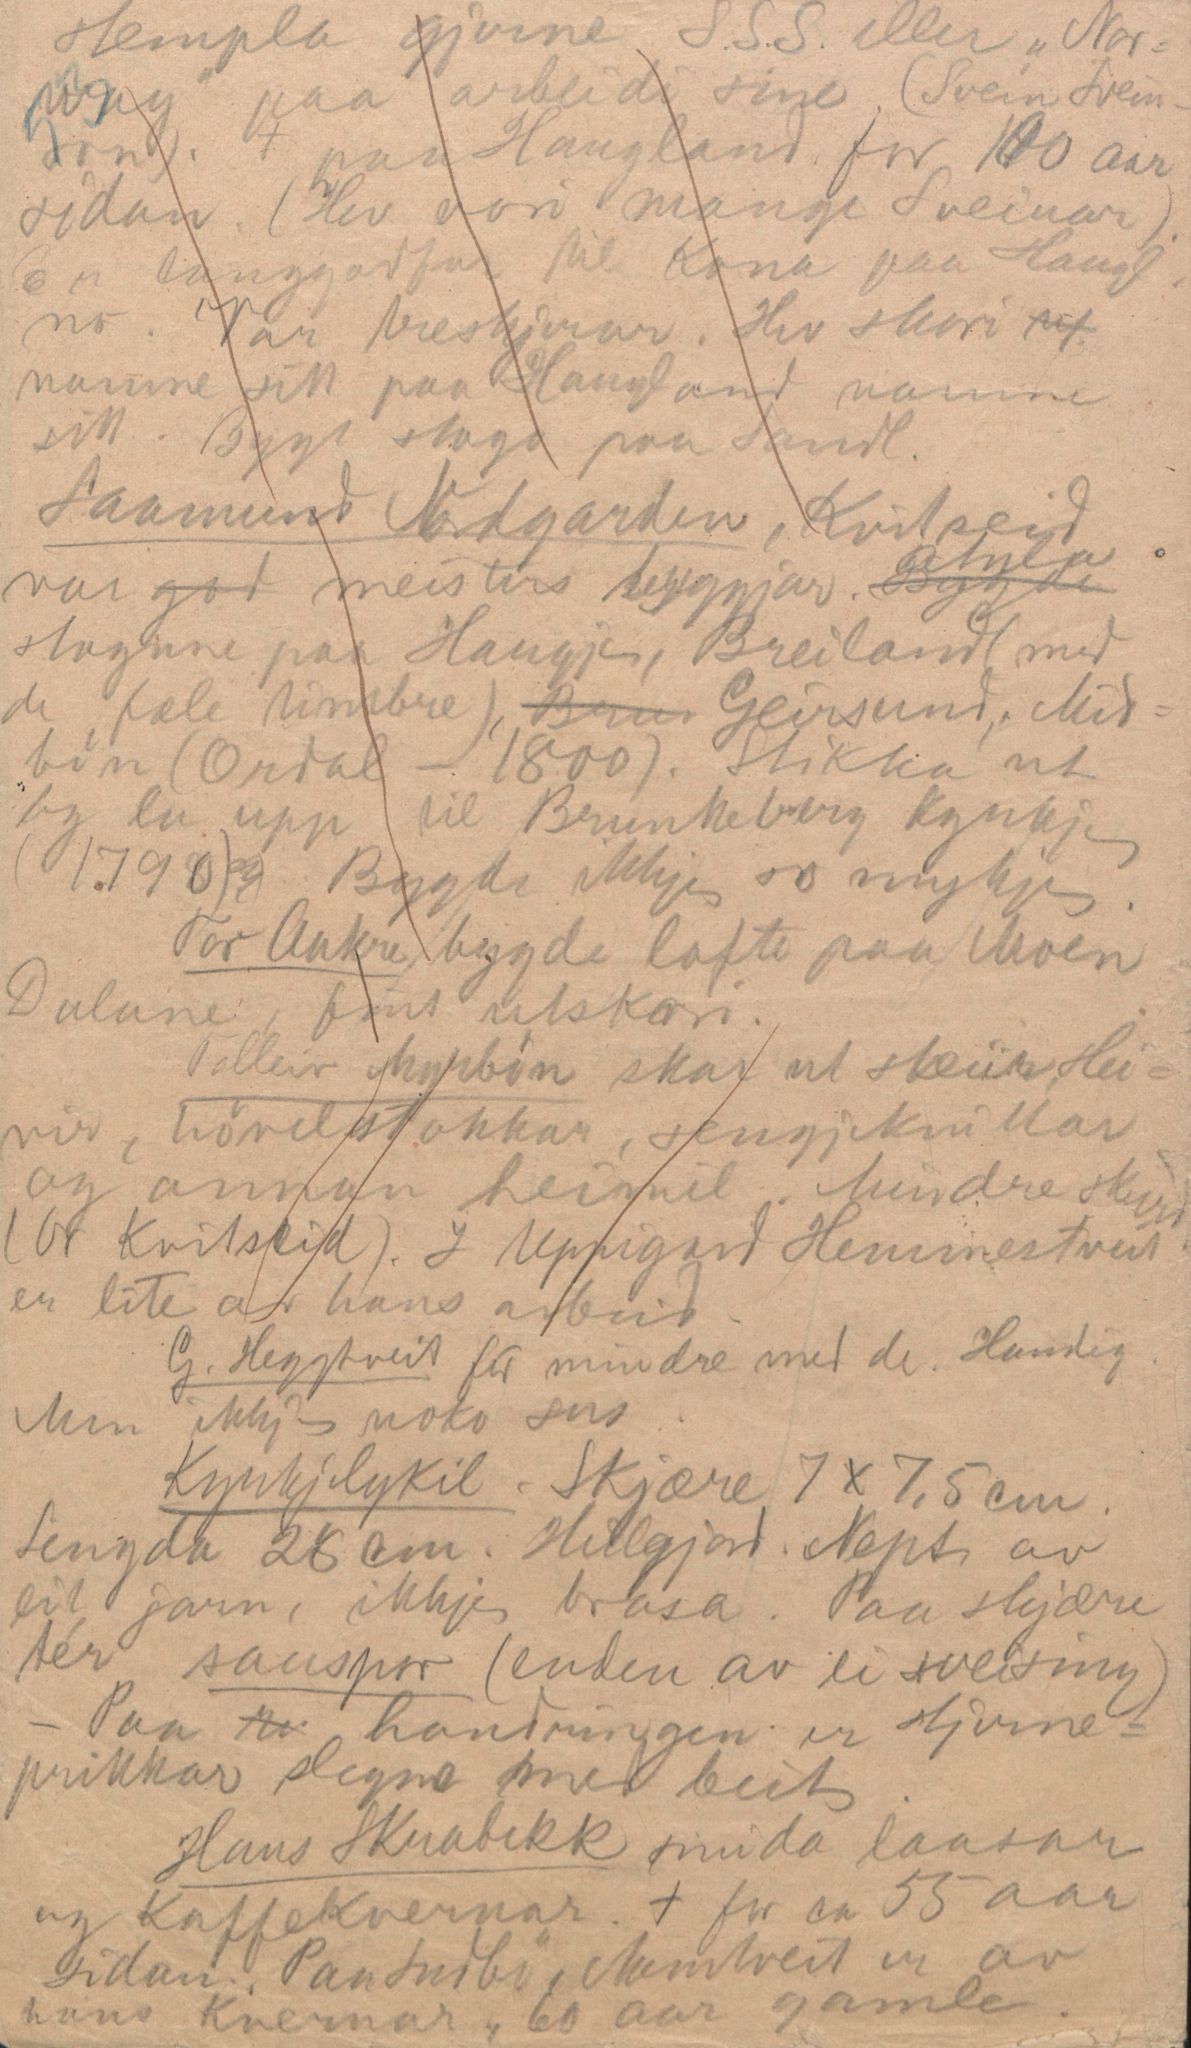 stempla gjerne S.S.S. eller „Nor=
way" paa arbeidi sine. (Svein Svein-
son). + paa Haugland for 100 aar
sidan. (Hev vori mange Sveinar).
Er langgodfar til Kona paa Haugl.
no. Var treskjerar. Hev skori
namne sitt paa Haugland namne
sitt. Bygt stoga paa Sandl.
Saamund Nordgarden, Kvitseid
var god meisters byggjar. Bygde
stogune paa Haugje, Breiland (med
de fæle timbre), Geirsund, Mid=
bøn (Ordal – 1800). Stikka ut
og la upp til Brunkeberg kyrkje
(1790). Bygde ikkje so mykje.
Tor Aakre bygde lofte paa Moen
Dalane, fint utskori.
Tolleiv Myrbøn skar ut skeiir, Hei=
vir, hövelstokkar, sengjeknikkar
og annan heimil. Mindre skurd
(or Kvitseid). I Uppigard Hemmestveit
er lite av hans arbeid.
G. Heggtveit for mindre med de. Handig.
Men ikkje noko sers.
Kyrkjelykil. Skjære 7 x 7,5 cm.
Lengda 26 cm. Heilgjord. Nept av
eit jarn, ikkje brasa. Paa skjære
tér sauspor (enden av ei sveising)
– Paa handringen er stjerne=
prikkar slegne med beit.
Hans Skrabekk smida laasar
og Kaffekvernar. + for ca 55 aar
sidan. Paa Sudbö, Momtveit er av
hans Kvernar, 60 aar gamle.